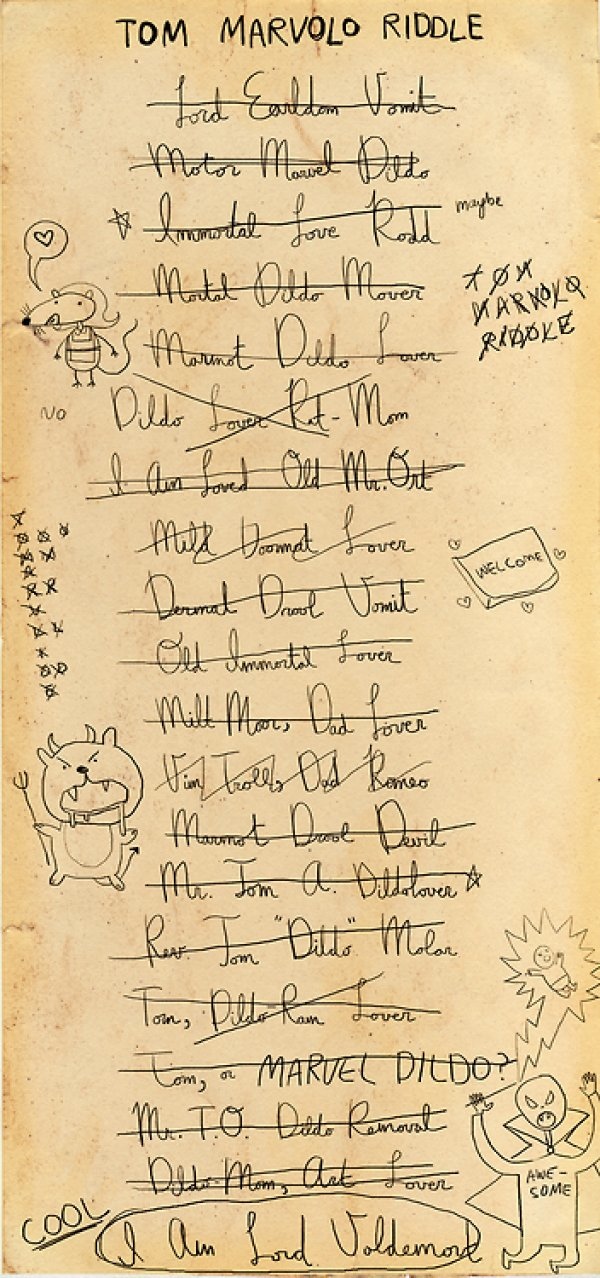 TOM MARVOLO RIDDLE
Lord Earldom Vomit
Motor Marvel Dildo
Immortal Love Rodd maybe
Mortal Dildo Mover
TOM
MARVOLO
RIDDLE
Marmot Dildo Lover
NO Dildo Lover Rat-Mom
I Am Loved Old Mr. Ort
Mild Doormat Lover
WELCOME
Dermal Drool Vomit
Old Immortal Lover
Milt Moor, Dad Lover
Vim Troll, Dad Romeo
Marmot Drool Devil
Mr. Tom A. Dildolover
Rev. Tom "Dildo" Molar
Tom, Dildo-Ram Lover
Tom, or MARVEL DILDO?
Mr. T.O. Dildo Removal
Dildo-Mom, Art Lover
AWE-
SOME
COOL
I Am Lord Voldemord